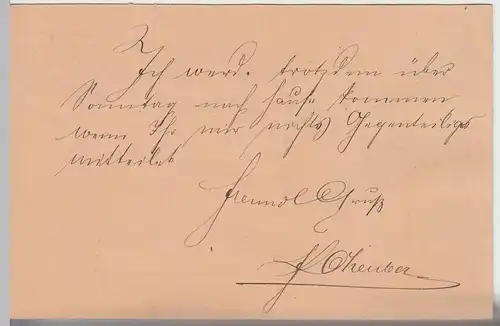 Ich werd. trotzdem über
Sonntag nach Hause kommen
wenn Ihr mir nichts Gegenteiliges
mitteilet
Freundl Gruß